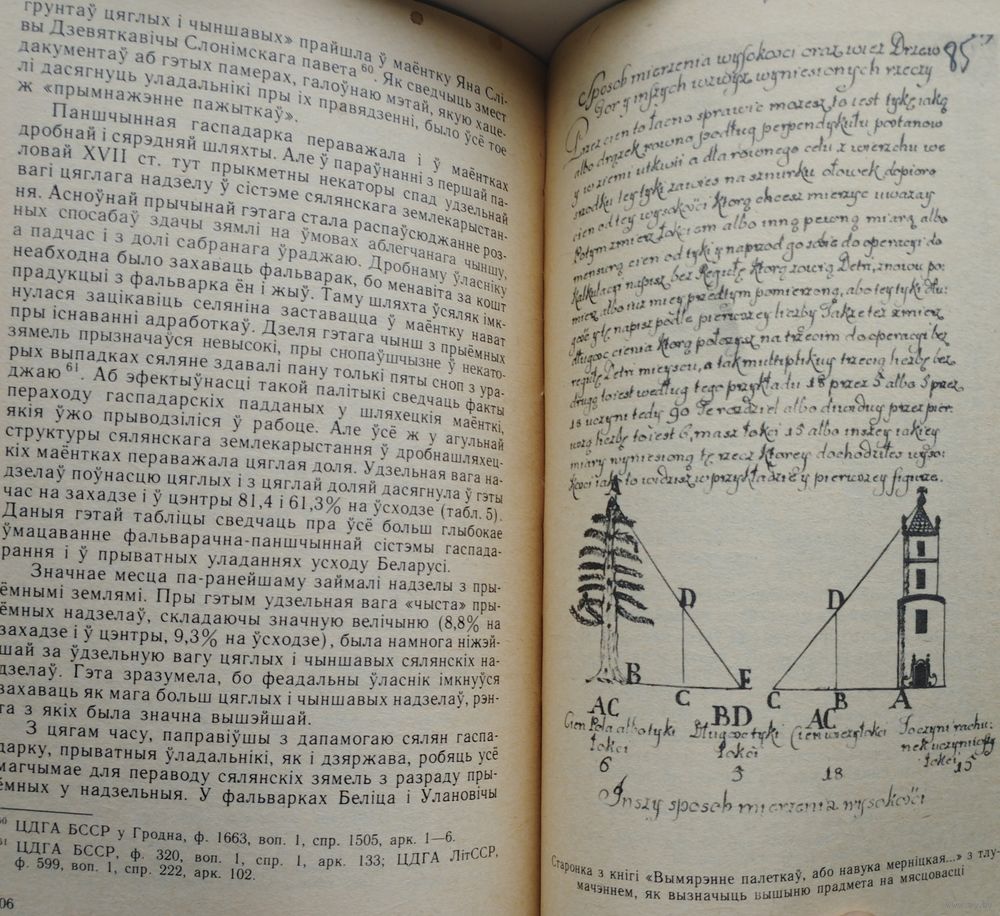 грунтаў цяглых і чыншавых» прайшла ў маёнтку Яна Слі-
вы Дзевяткавічы Слонімскага павета 60. Як сведчыць змест
дакументаў аб гэтых памерах, галоўнаю мэтай, якую хаце-
лі дасягнуць уладальнікі пры іх правядзенні, было ўсё тое
ж «прымнажэнне пажыткаў».
Паншчынная гаспадарка пераважала і ў маёнтках
дробнай і сярэдняй шляхты. Але ў параўнанні з першай па-
ловай XVII ст. тут прыкметны некаторы спад удзельнай
вагі цяглага надзелу ў сістэме сялянскага землекарыстан-
ня. Асноўнай прычынай гэтага стала распаўсюджанне роз-
ных спосабаў здачы зямлі на ўмовах аблегчанага чыншу,
а падчас і з долі сабранага ўраджаю. Дробнаму ўласніку
неабходна было захаваць фальварак, бо менавіта за кошт
прадукцыі з фальварка ён і жыў. Таму шляхта ўсяляк імк-
нулася зацікавіць селяніна заставацца ў маёнтку нават
пры існаванні адработкаў. Дзеля гэтага чынш з прыёмных
зямель прызначаўся невысокі, пры снопаўшчызне ў некато-
рых выпадках сяляне здавалі пану толькі пяты сноп з ура-
джаю 61. Аб эфектыўнасці такой палітыкі сведчаць факты
пераходу гаспадарскіх падданых у шляхецкія маёнткі,
якія ўжо прыводзіліся ў рабоце. Але ўсё ж у агульнай
структуры сялянскага землекарыстання ў дробнашляхец-
кіх маёнтках пераважала цяглая доля. Удзельная вага на-
дзелаў поўнасцю цяглых і з цяглай доляй дасягнула ў гэты
час на захадзе і ў цэнтры 81,4 і 61,3% на ўсходзе (табл. 5).
Даныя гэтай табліцы сведчаць пра ўсё больш глыбокае
ўмацаванне фальварачна-паншчыннай сістэмы гаспада-
рання і ў прыватных уладаннях усходу Беларусі.
Значнае месца па-ранейшаму займалі надзелы з пры-
ёмнымі землямі. Пры гэтым удзельная вага «чыста» пры-
ёмных надзелаў, складаючы значную велічыню (8,8% на
захадзе і ў цэнтры, 9,3% на ўсходзе), была намнога ніжэй-
шай за ўдзельную вагу цяглых і чыншавых сялянскіх на-
дзелаў. Гэта зразумела, бо феадальны ўласнік імкнуўся
захаваць як мага больш цяглых і чыншавых надзелаў, рэн-
та з якіх была значна вышэйшай.
З цягам часу, паправіўшы з дапамогаю сялян гаспа-
дарку, прыватныя ўладальнікі, як і дзяржава, робяць усё
магчымае для пераводу сялянскіх зямель з разраду пры-
ёмных у надзельныя. У фальварках Беліца і Улановічы
60 ЦДГА БССР у Гродна, ф. 1663, воп. 1, спр. 1505, арк. 1—6.
61 ЦДГА БССР, ф. 320, воп. 1, спр. 1, арк. 133; ЦДГА ЛітССР,
ф. 599, воп. 1, спр. 222, арк. 102.
06
85
Sposob mierzenia wysokości oraz wież Drzew
Gor y inszych wzwysz wyniesionych rzeczy
Przez cien to łacno sprawić możesz to iest tykę iaką
albo drążek rowno podług perpendykułu postanow
y w ziemi utkwii a dla rownego celu z wierzchu we
srodku tey tyki zawies na sznurku ołowek dopioro
cien od tey wysokości ktorą chcesz mierzyc uwazay
Potym zmierz łokciem albo inną pewną miarą albo
mensurą cien od tyki y naprzod go sobie do operacyi do
kalkulacyi napisz bez Regułę ktorą zowią Detri, znowu po:
mierz albo iuz miey przedtym pomierzoną, abo tey tyki dłu:
gość y tę napisz podle pierwszey liczby Takze tez zmierz
długosc cienia ktorą położysz na trzecim do operacyi bez
regułę Detri mieyscu, a tak multiplikuy trzecią liczbę bez
drugą to iest według tego przykładu 18 przez 5 albo 5 przez
18 uczyni tedy 90 Te rozdziel albo diwiduy przez pier:
wszą liczbę to iest 6, masz łokci 15 albo inszey iakiey
miary wyniesioną tę rzecz ktorey dochodziłes wyso:
kosci iak to widzisz w przykładzie y pierwszey figurze.
A
D
D
B
C
E
C
B
A
AC
BD
AC
Cien Pola albo tyki
Długosc tyki
Cien wiezy łokci
To czyni rachu:
łokci
łokci
nek uczyniony
łokci
6
5
18
15
Inszy sposob mierzenia wysokości
Старонка з кнігі «Вымярэнне палеткаў, або навука мерніцкая...» з тлу-
мачэннем, як вызначыць вышыню прадмета на мясцовасці